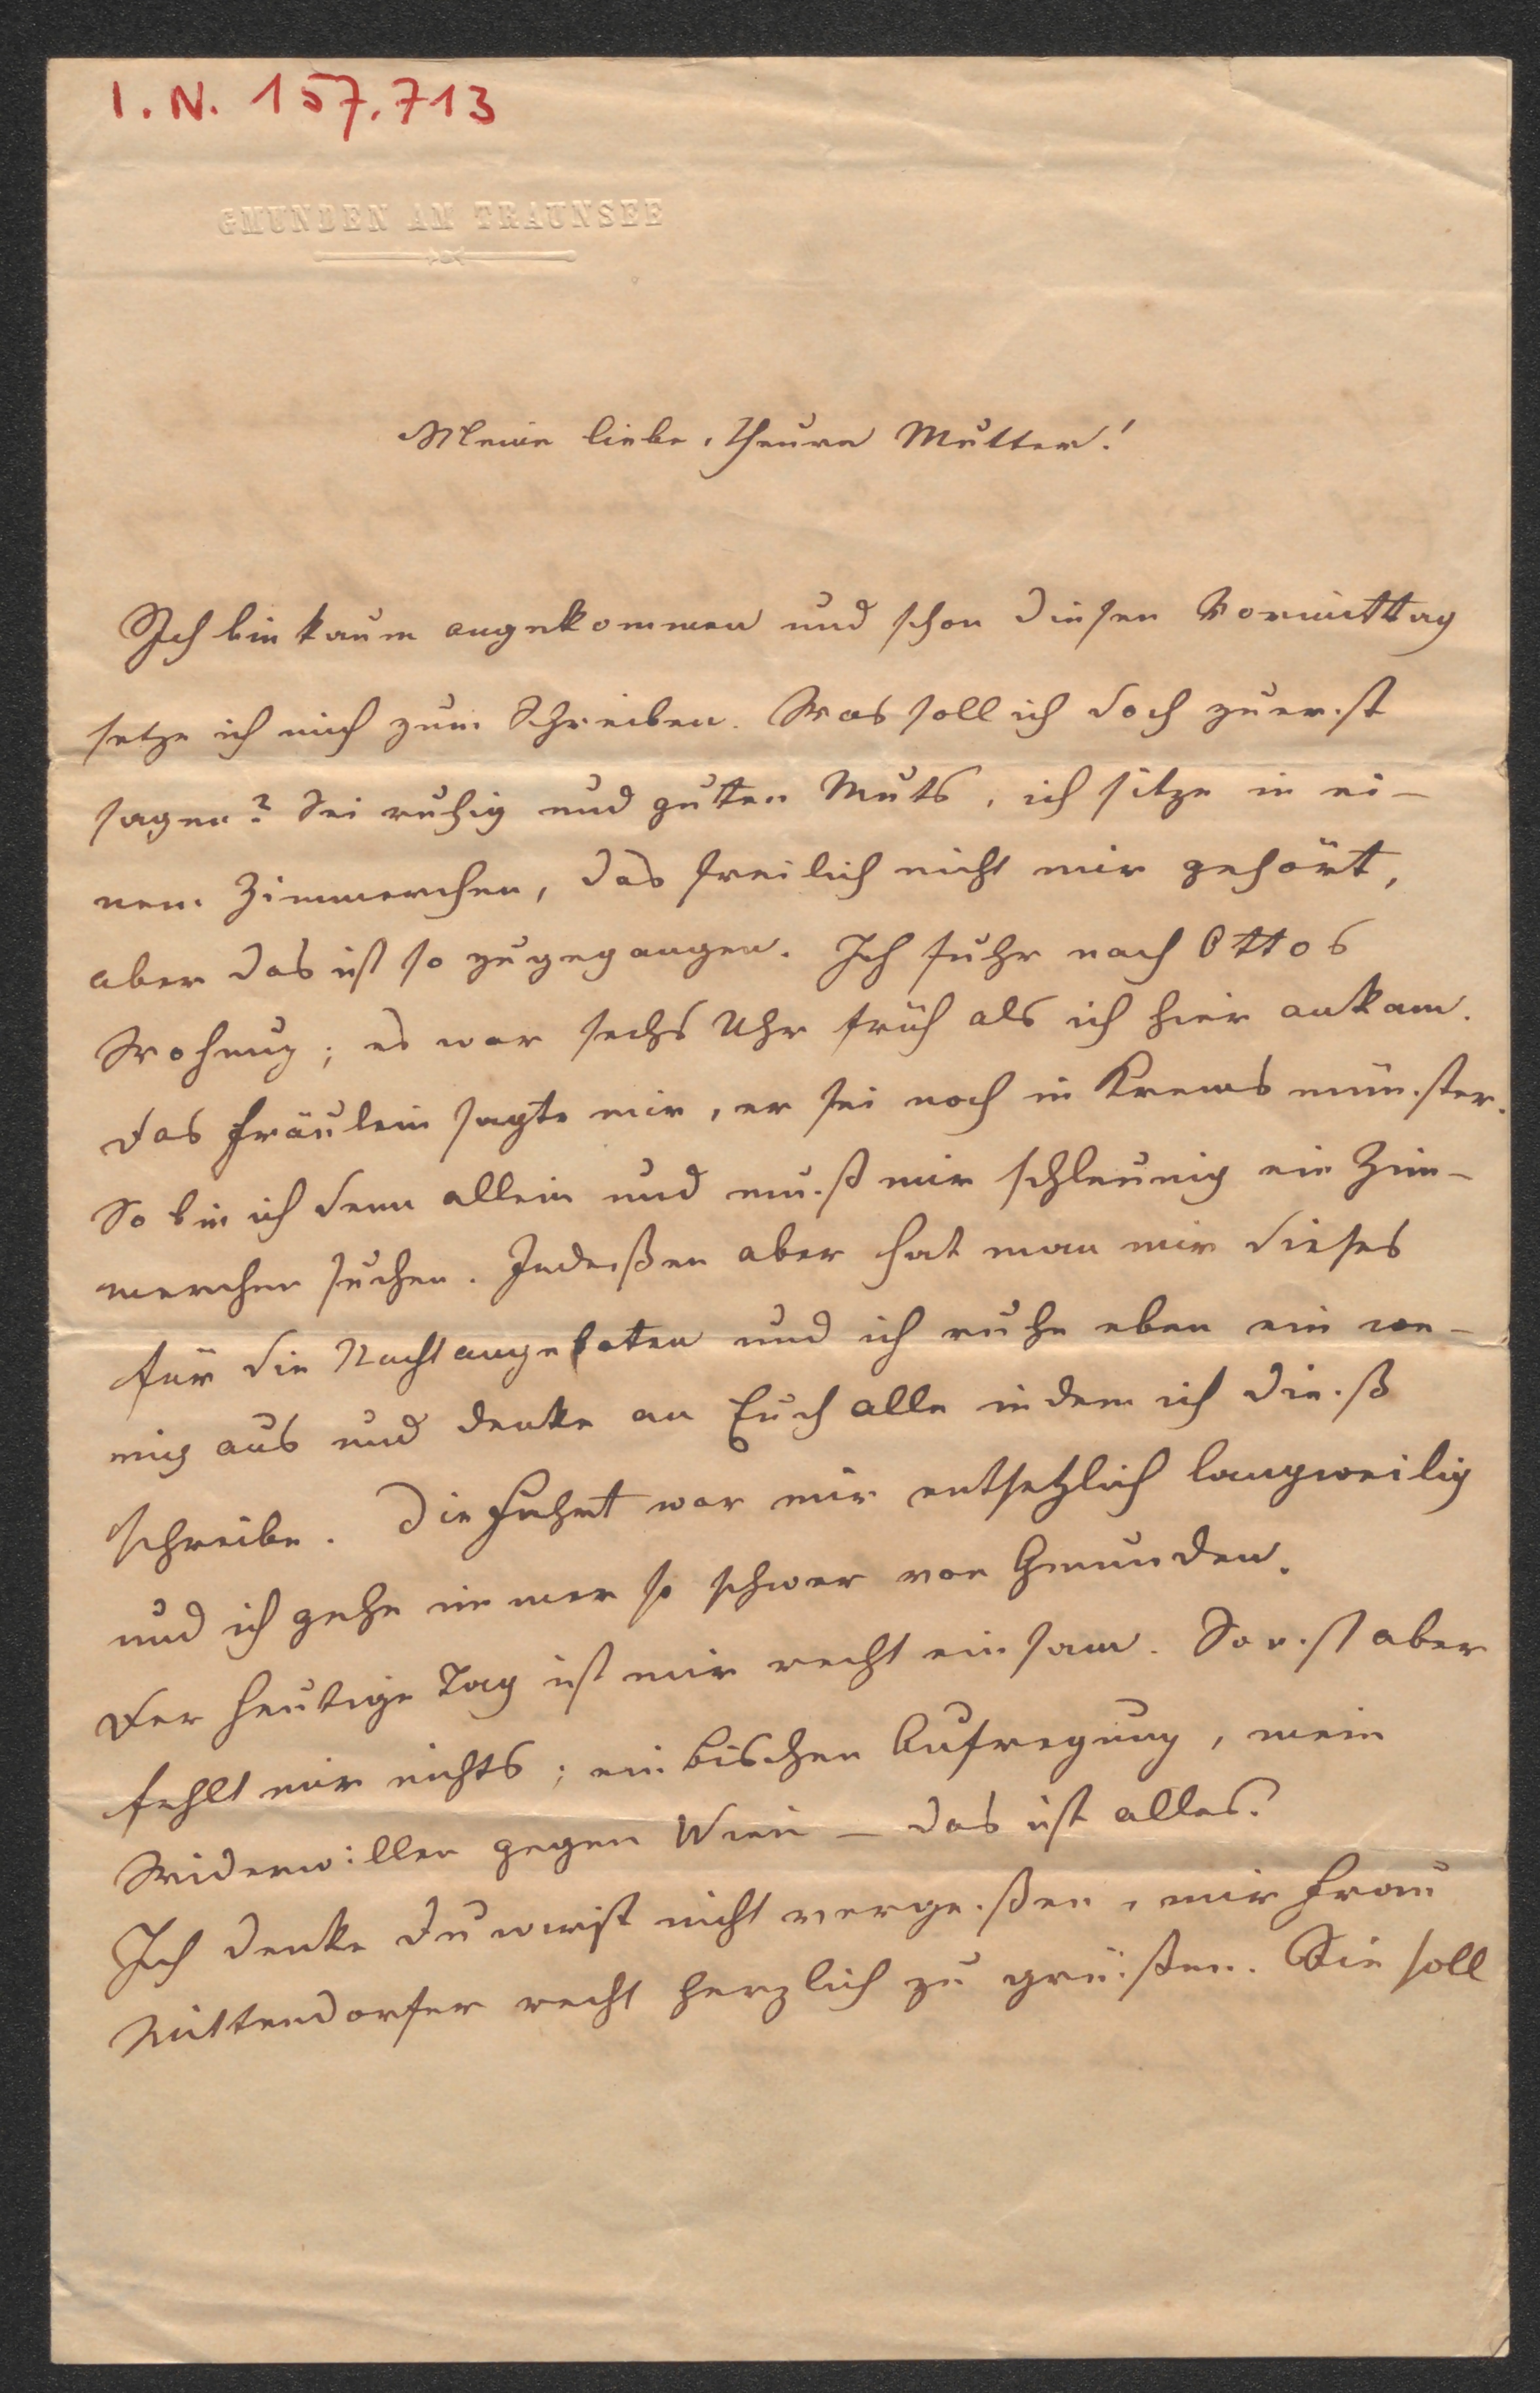 I. N. 157.713
GMUNDEN AM TRAUNSEE
Meine liebe, theure Mutter!
Ich bin kaum angekommen und schon diesen Vormittag
setze ich mich zum Schreiben. Was soll ich doch zuerst
sagen? Sei ruhig und guten Muts, ich sitze in ei-
nem Zimmerchen, das freilich nicht mir gehört,
aber das ist so zugegangen. Ich fuhr nach Ottos
Wohnung; es war sechs Uhr früh als ich hier ankam.
Das Fräulein sagte mir, er sei noch in Kremsmünster.
So bin ich denn allein und muß mir schleunig ein Zim-
merchen suchen. Indeßen aber hat man mir dieses
für die Nacht angeboten und ich ruhe eben ein we-
nig aus und denke an Euch alle indem ich dieß
schreibe. Die Fahrt war mir entsetzlich langweilig
und ich gehe immer so schwer von Gmunden.
Der heutige Tag ist mir recht einsam. Sonst aber
fehlt mir nichts; ein bischen Aufregung, mein
Widerwillen gegen Wien – das ist alles.
Ich denke Du wirst nicht vergeßen, mir Frau
Mittendorfer recht herzlich zu grüßen. Sie soll